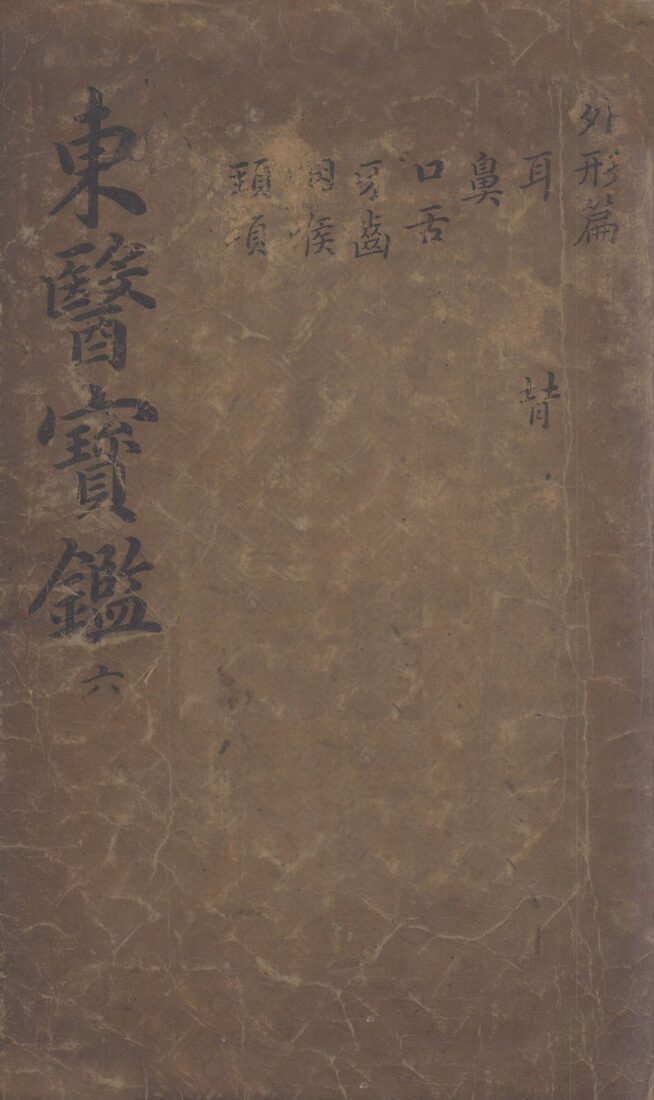 外形篇
耳 背
鼻
口舌
牙齒
咽喉
頸項
東醫寶鑑 六